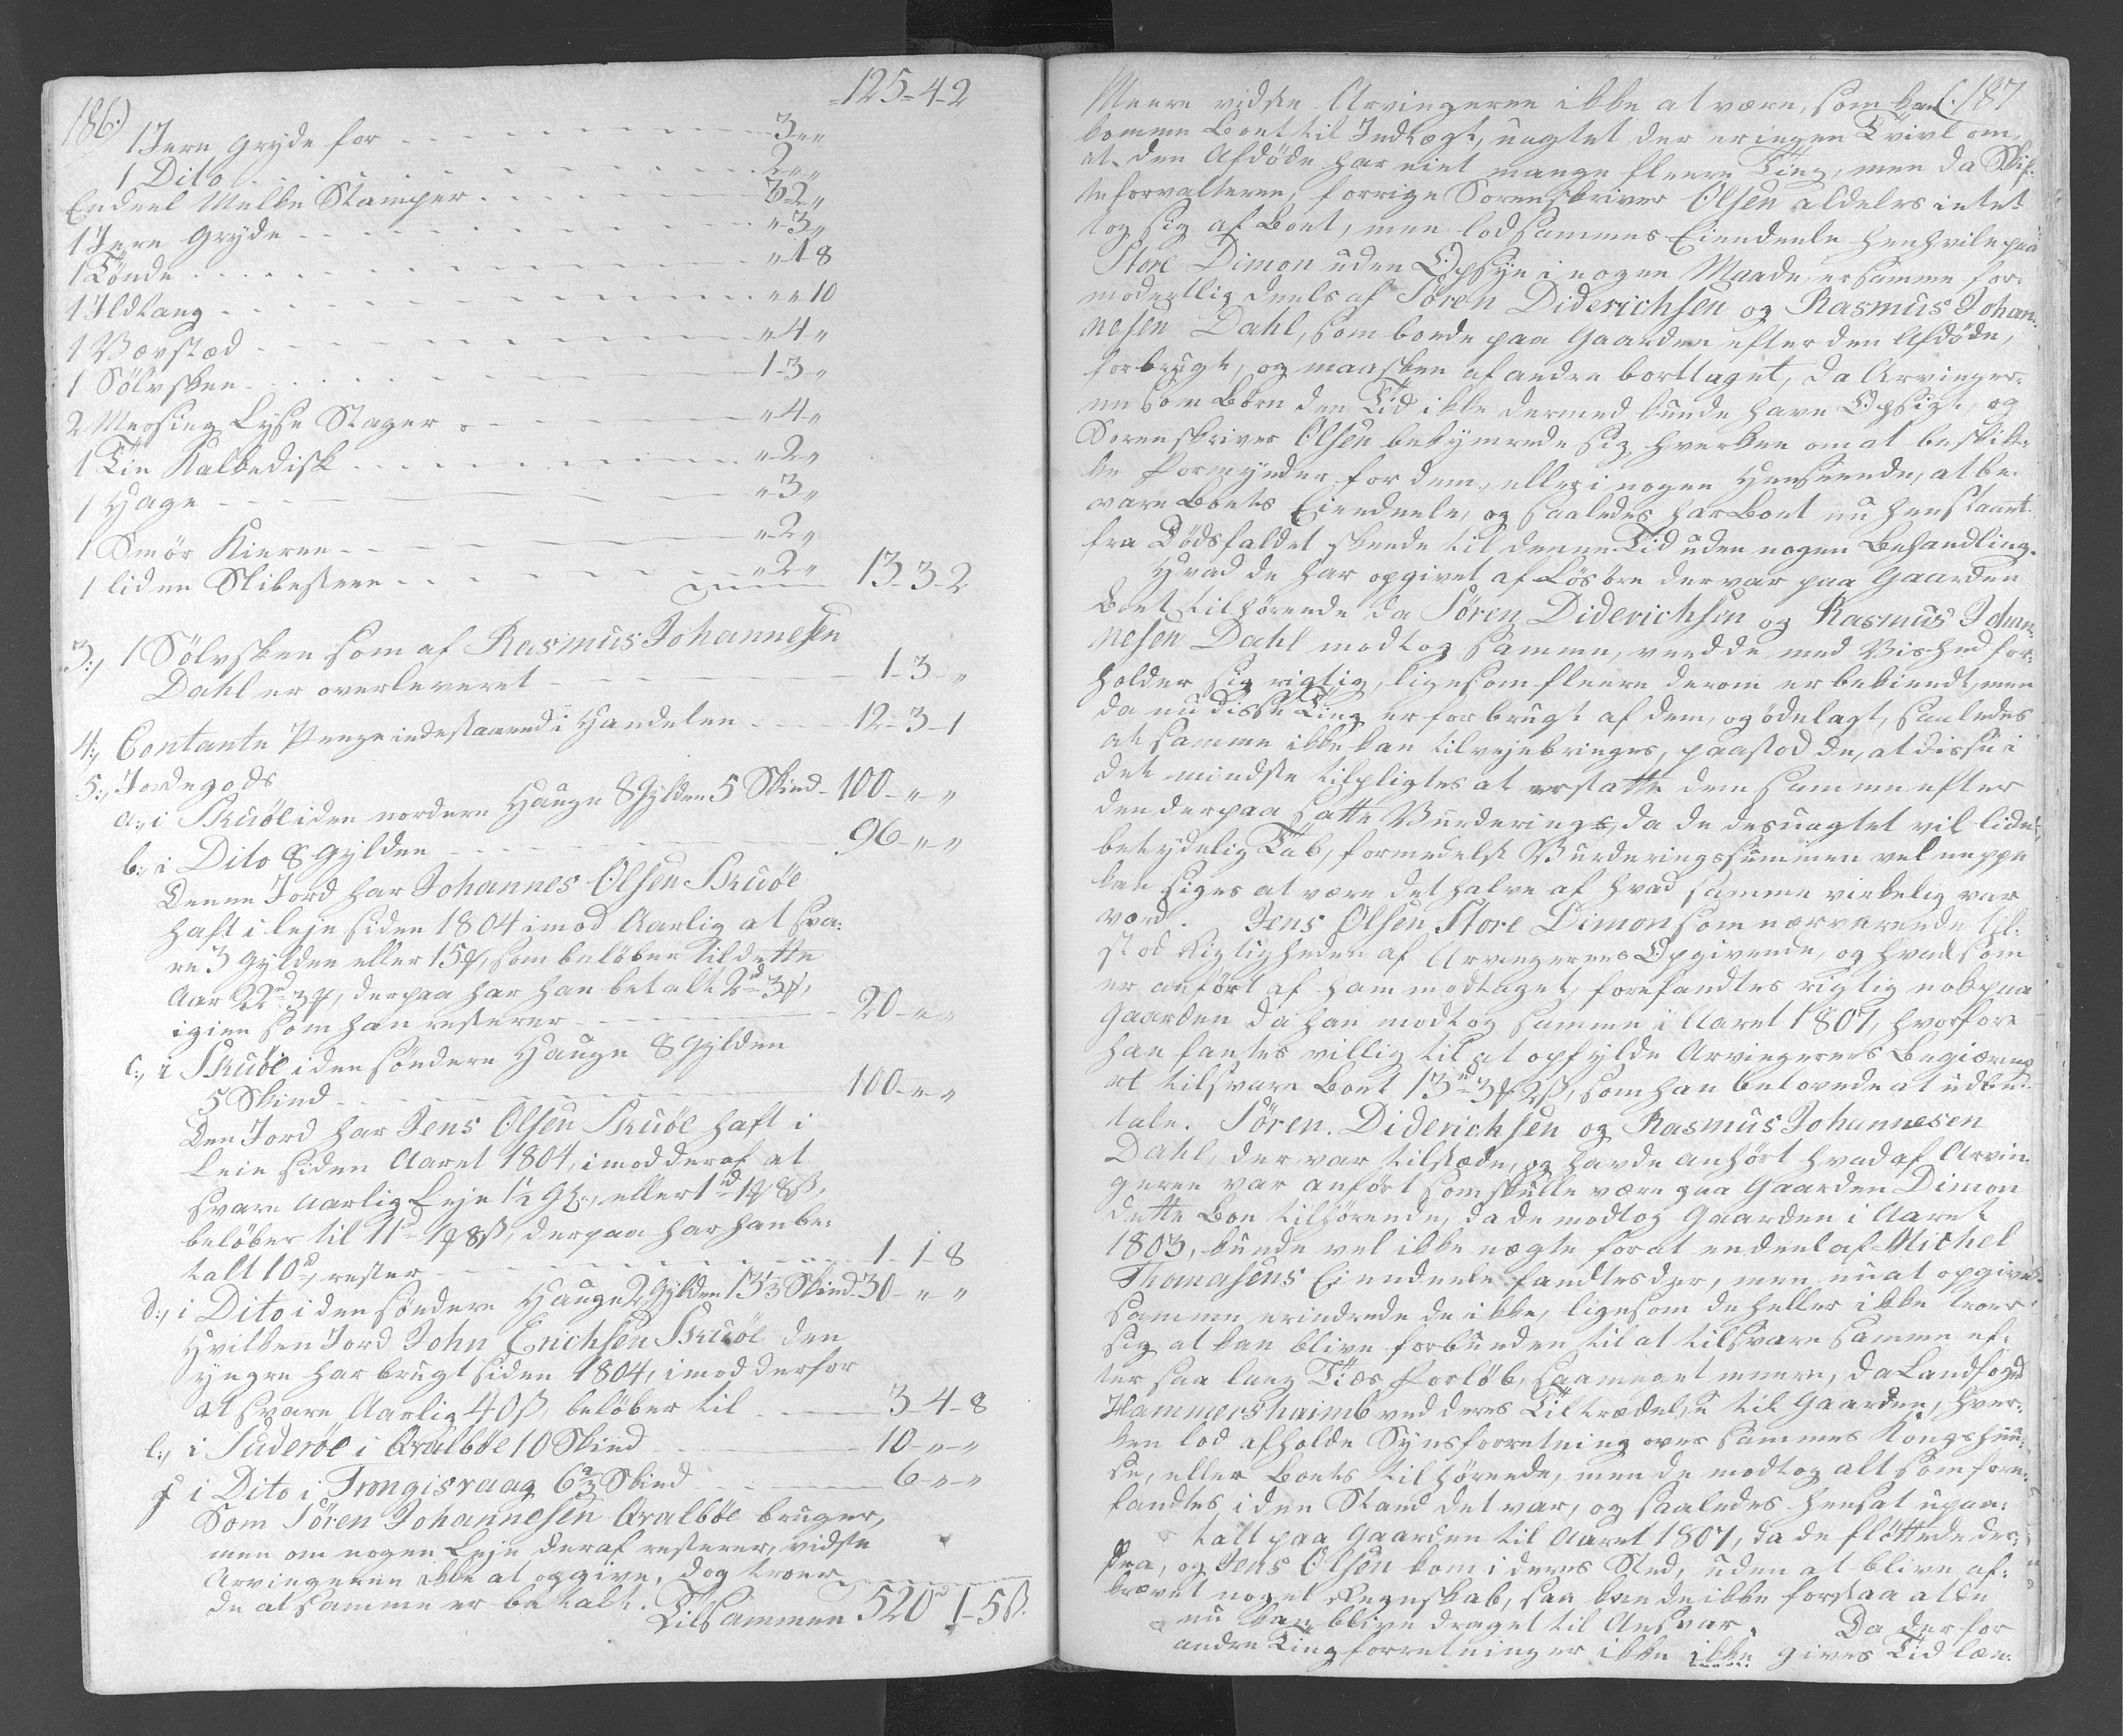 186.)
125-4-2
1 Jern Gryde for - - - 3 „ „
1 Dito - - - 2 „ „
Endeel Melke Stamper - - - 3-2 „
1 Jern Gryde - - - „ 3 „
1 Tönde - - - „ 1 8
1 Ildtang - - - „ „ 10
1 Vævstæd - - - „ 4 „
1 Sölvskee - - - 1-3 „
2 Messing Lyse Stager - - - „ 4 „
1 Tin Kalkedisk - - - „ 2 „
1 Hage - - - „ 3 „
1 Smör Kierne - - - „ 2 „
1 liden Slibesteen - - - „ 2 „ 13-3-2
3:, 1 Sölvskee som af Rasmus Johannesen
Dahl er overleveret - - - 1-3- „
4:, Contante Penge indestaaend i Handelen - - - 12-3-1
5:, Jordegods
a:, i Skuöe i den nordere Hauge 8 Gylden 5 Skind - 100 - „ - „
b:, i Dito 8 Gylden - - - 96 - „ - „
Denne Jord har Johannes Olsen Skuöe
haft i leje siden 1804 imod Aarlig at sva:
re 3 Gylden eller 15 ʒ, som belöber til dette
Aar 22 rd 3 ʒ, derpaa har han betalt 2 rd 3 ʒ,
igien som han resterer - - - 20 - „ - „
c:, i Skuöe i den söndere Hauge 8 Gylden
5 Skind - - - 100 - „ - „
Den Jord har Jens Olsen Skuöe haft i
Leie siden Aaret 1804, imod deraf at
svare aarlig Leje 1½ Gl:, eller 1 rd 1 ʒ 8 ß,
belöber til 11 rd 1 ʒ 8 ß, derpaa har han be:
talt 10 rd, rester - - - 1-1-8
d:, i Dito i den söndere Hauge 2 Gylden 13⅓ Skind 30 - „ „
Hvilken Jord John Erichsen Skuöe den
yngre har brugt siden 1804, imod derfor
at svare Aarlig 40 ß, belöber til - - - 3-4-8
e:, i Suderöe i Qvalböe 10 Skind - - - 10 - „ - „
f i Dito i Trongisvaag 6⅔ Skind - - - 6 - „ - „
Som Sören Johannesen Qvalböe bruger,
men om nogen Leje deraf resterer, vidste
Arvingerne ikke at opgive, dog troer
de at samme er betalt.
Tilsammen 520 rd 1-5 ß.
187
Meere vidste Arvingerne ikke at være, som kan
komme Boet til Indtægt, uagtet der er ingen Tvivl om,
at den Afdöde har eiet mange fleere Ting, men da Skif:
teforvalteren, forrige Sorenskriver Olsen aldeles intet
tog sig af Boet, men lod sammes Eiendeele henhvile paa
Store Dimon uden Opsyn i nogen Maade, er samme for:
modentlig deels af Sören Diderichsen og Rasmus Johan:
nesen Dahl, som boede paa Gaarden efter den Afdöde,
forbrugt, og maaskee af andre borttaget, da Arvinger:
ne som Börn den Tid ikke dermed kunde have Opsigt, og
Sorenskriver Olsen bekymrede sig hverken om at beskik:
ke Formynder for dem, eller i nogen Henseende, at be:
vare Boets Eiendeele, og saaledes har Boet nu henstaaet
fra Dödsfaldet skeede til denne Tid uden nogen Behandling.
Hvad de har opgivet af Lösöre der var paa Gaarden
Boet tilhörende da Sören Diderichsen og Rasmus Johan:
nesen Dahl modtog samme, veed de med Vished for:
holder sig rigtig, ligesom fleere derom er bekiendt, men
da nu disse Ting er forbrugt af dem, og ödelagt, saaledes
at samme ikke kan tilvejebringes, paastod de, at disse i
det mindste tilpligtes at erstatte dem samme efter
den derpaa satte Vurdering, da de desuagtet vil lide
betydelig Tab, formedelst Vurderingssummen vel neppe
kan siges at være det halve af hvad samme virkelig var
værd. Jens Olsen Store Dimon som nærværende til:
stod Rigtigheden af Arvingernes Opgivende, og hvad som
er anfört af ham modtaget, forefandtes rigtig nok paa
Gaarden da han modtog samme i Aaret 1807, hvorfore
han fantes villig til at opfylde Arvingernes Begiæring
at tilsvare Boet 13 rd 3 ʒ 2 ß, som han belovede at udbe:
tale. Sören Diderichsen og Rasmus Johannesen
Dahl, der var tilstæde, og havde anhört hvad af Arvin
gerne var anfört som skulle være paa Gaarden Dimon
dette Boe tilhörende, da de modtog Gaarden i Aaret
1803, kunde vel ikke nægte for at endeel af Michel
Thomasens Eiendeele fandtes der, men nu at opgive
samme erindrede de ikke, ligesom de heller ikke troer
sig at kan blive forbunden til at tilsvare samme ef:
ter saa lang Tiids Forlöb, saameget meere, da Landfoged
Hammershaimb ved deres Tiltrædelse til Gaarden, hver:
ken lod afholde Synsforretning over sammes Kongshuu:
se, eller Boets tilhörende, men de modtog alt som fore:
fandtes i den Stand det var, og saaledes hensat upaa:
talt paa Gaarden til Aaret 1807, da de flöttede der:
fra, og Jens Olsen kom i deres Sted, uden at blive af:
krævet noget Regnskab, saa kan de ikke forstaa at de
nu kan blive draget til Ansvar. Da der for
andre Tingforretninger ikke ikke gives Tid læn: